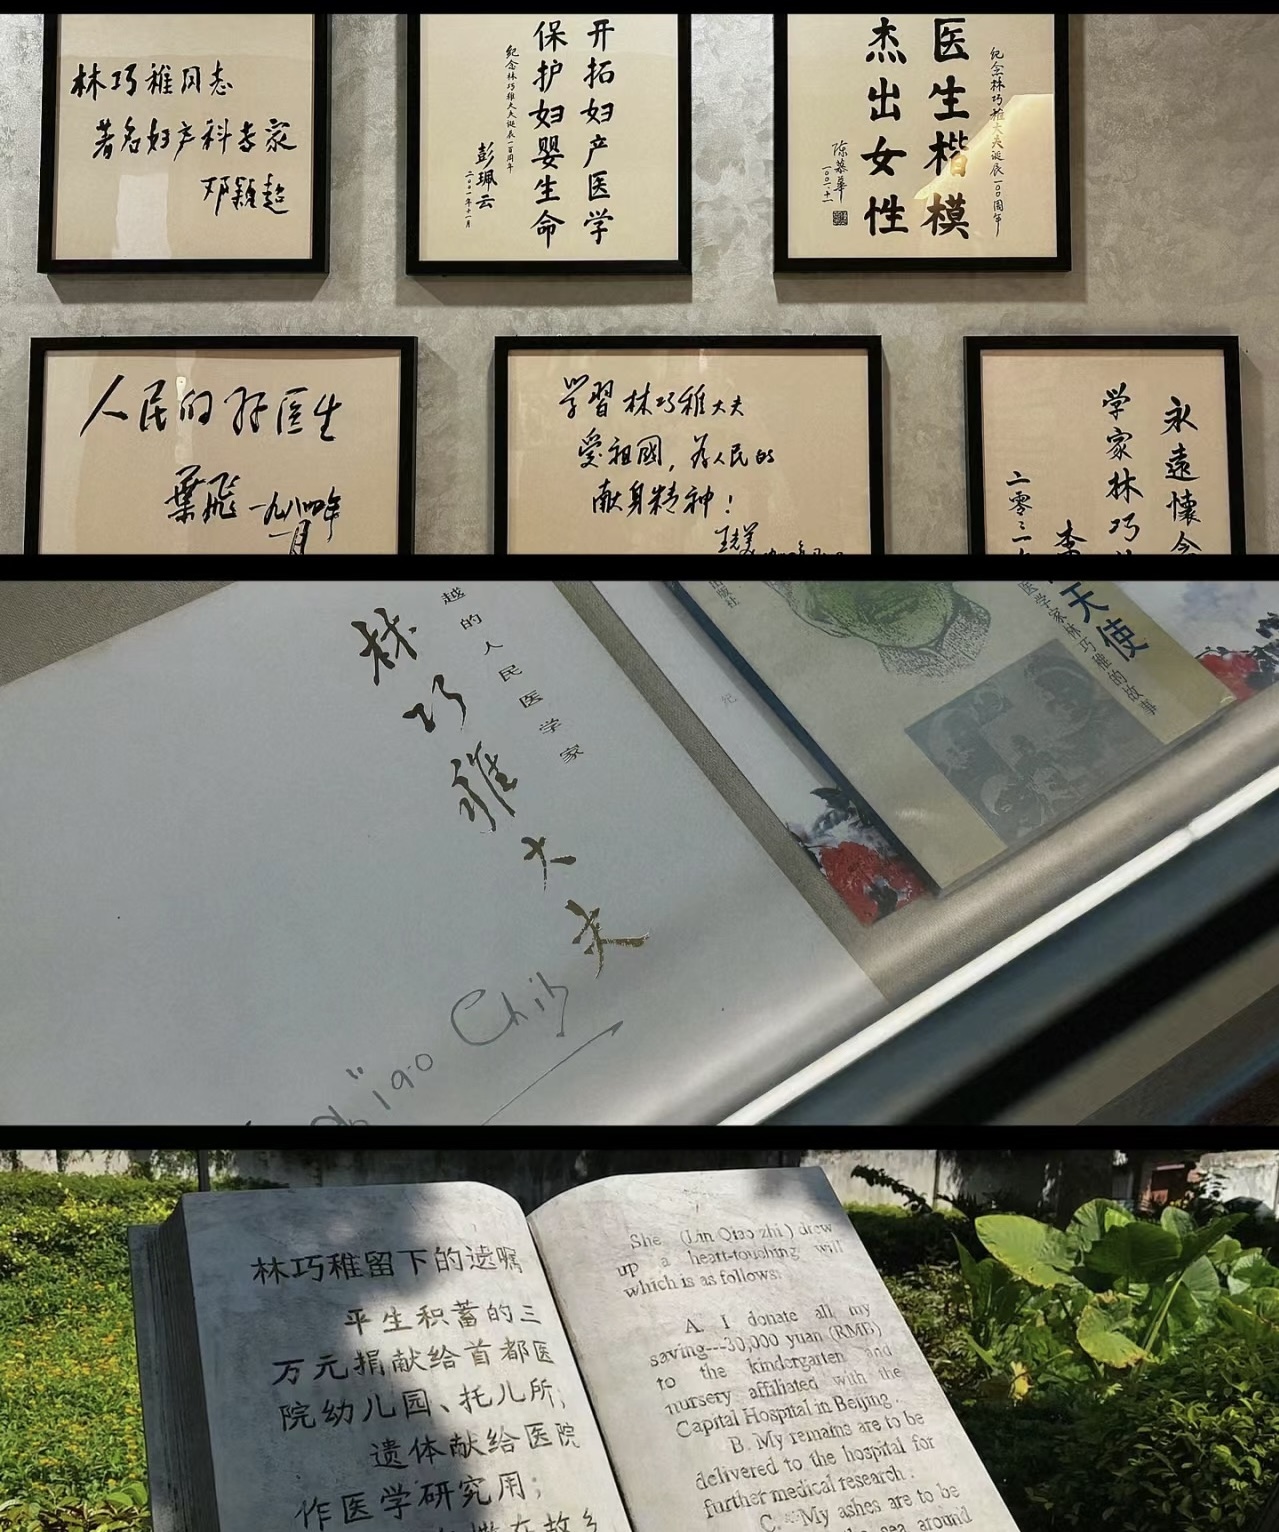 林巧稚同志
著名妇产科专家
邓颖超
开拓妇产医学
保护妇婴生命
纪念林巧稚大夫诞辰一百周年
彭珮云
二〇〇一年十一月
纪念林巧稚大夫诞辰一〇〇周年
医生楷模
杰出女性
陈慕华
人民的好医生
葉飛 一九八四年
学習林巧稚大夫
爱祖國，为人民的
献身精神！
王光美
永遠懷念
学家林巧
李
二零
越的人民医学家
林巧稚大夫
Chih
出版社
天使
医学家林巧稚的故事
纪
林巧稚留下的遗嘱
平生积蓄的三
万元捐献给首都医
院幼儿园、托儿所；
遗体献给医院
作医学研究用；
She (Lin Qiao zhi) drew
up a heart-touching will
which is as follows:
A. I donate all my
saving---30,000 yuan (RMB)
to the kindergarten and
nursery affiliated with the
Capital Hospital in Beijing.
B. My remains are to be
delivered to the hospital for
further medical research.
C. My ashes are to be
sea around